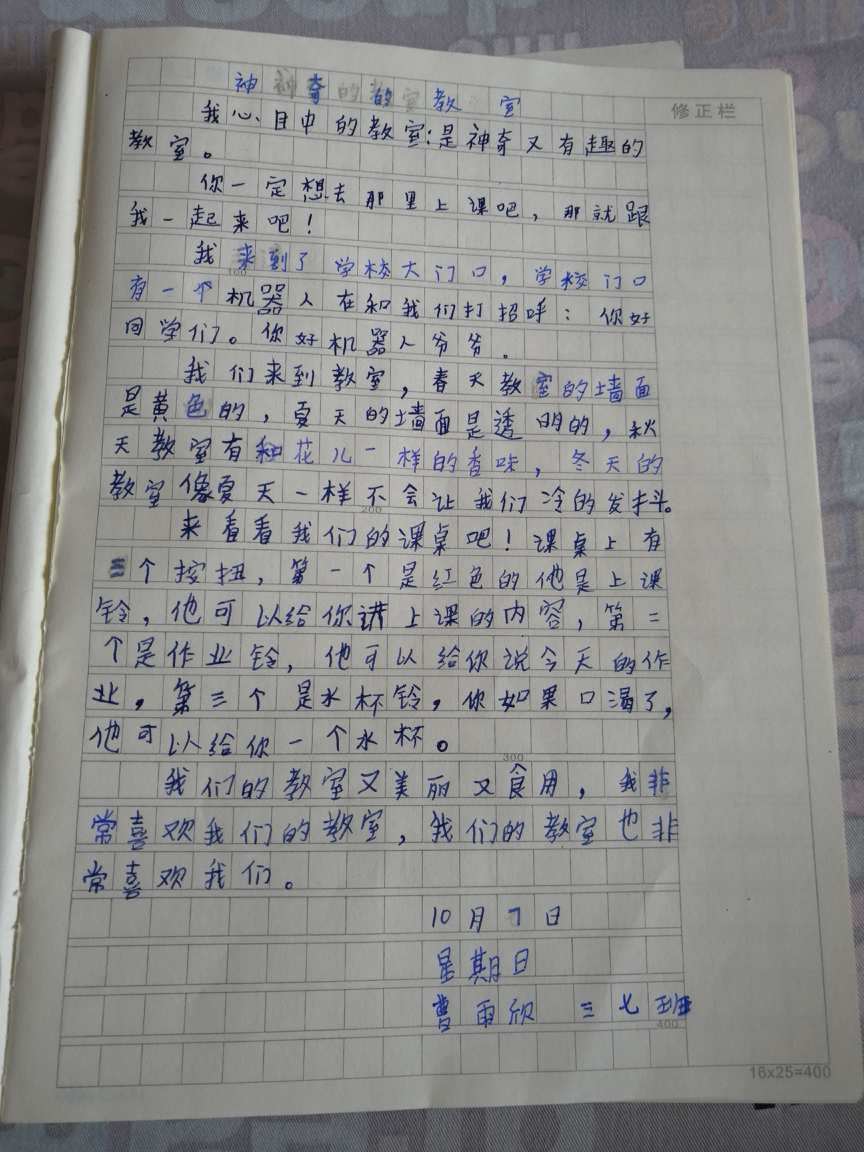 神奇的教室
修正栏
我心目中的教室:是神奇又有趣的
教室。
你一定想去那里上课吧，那就跟
我一起来吧！
我来到了学校大门口，学校门口
100
有一个机器人在和我们打招呼：你好
同学们。你好机器人爷爷。
我们来到教室，春天教室的墙面
是黄色的，夏天的墙面是透明的，秋
天教室有和花儿一样的香味，冬天的
教室像夏天一样不会让我们冷的发抖。
200
来看看我们的课桌吧！课桌上有
三个按扭，第一个是红色的他是上课
铃，他可以给你讲上课的内容，第二
个是作业铃，他可以给你说今天的作
业，第三个是水杯铃，你如果口渴了，
他可以给你一个水杯。
300
我们的教室又美丽又食用，我非
常喜欢我们的教室，我们的教室也非
常喜欢我们。
10月7日
星期日
曹雨欣 三七班
400
16x25=400